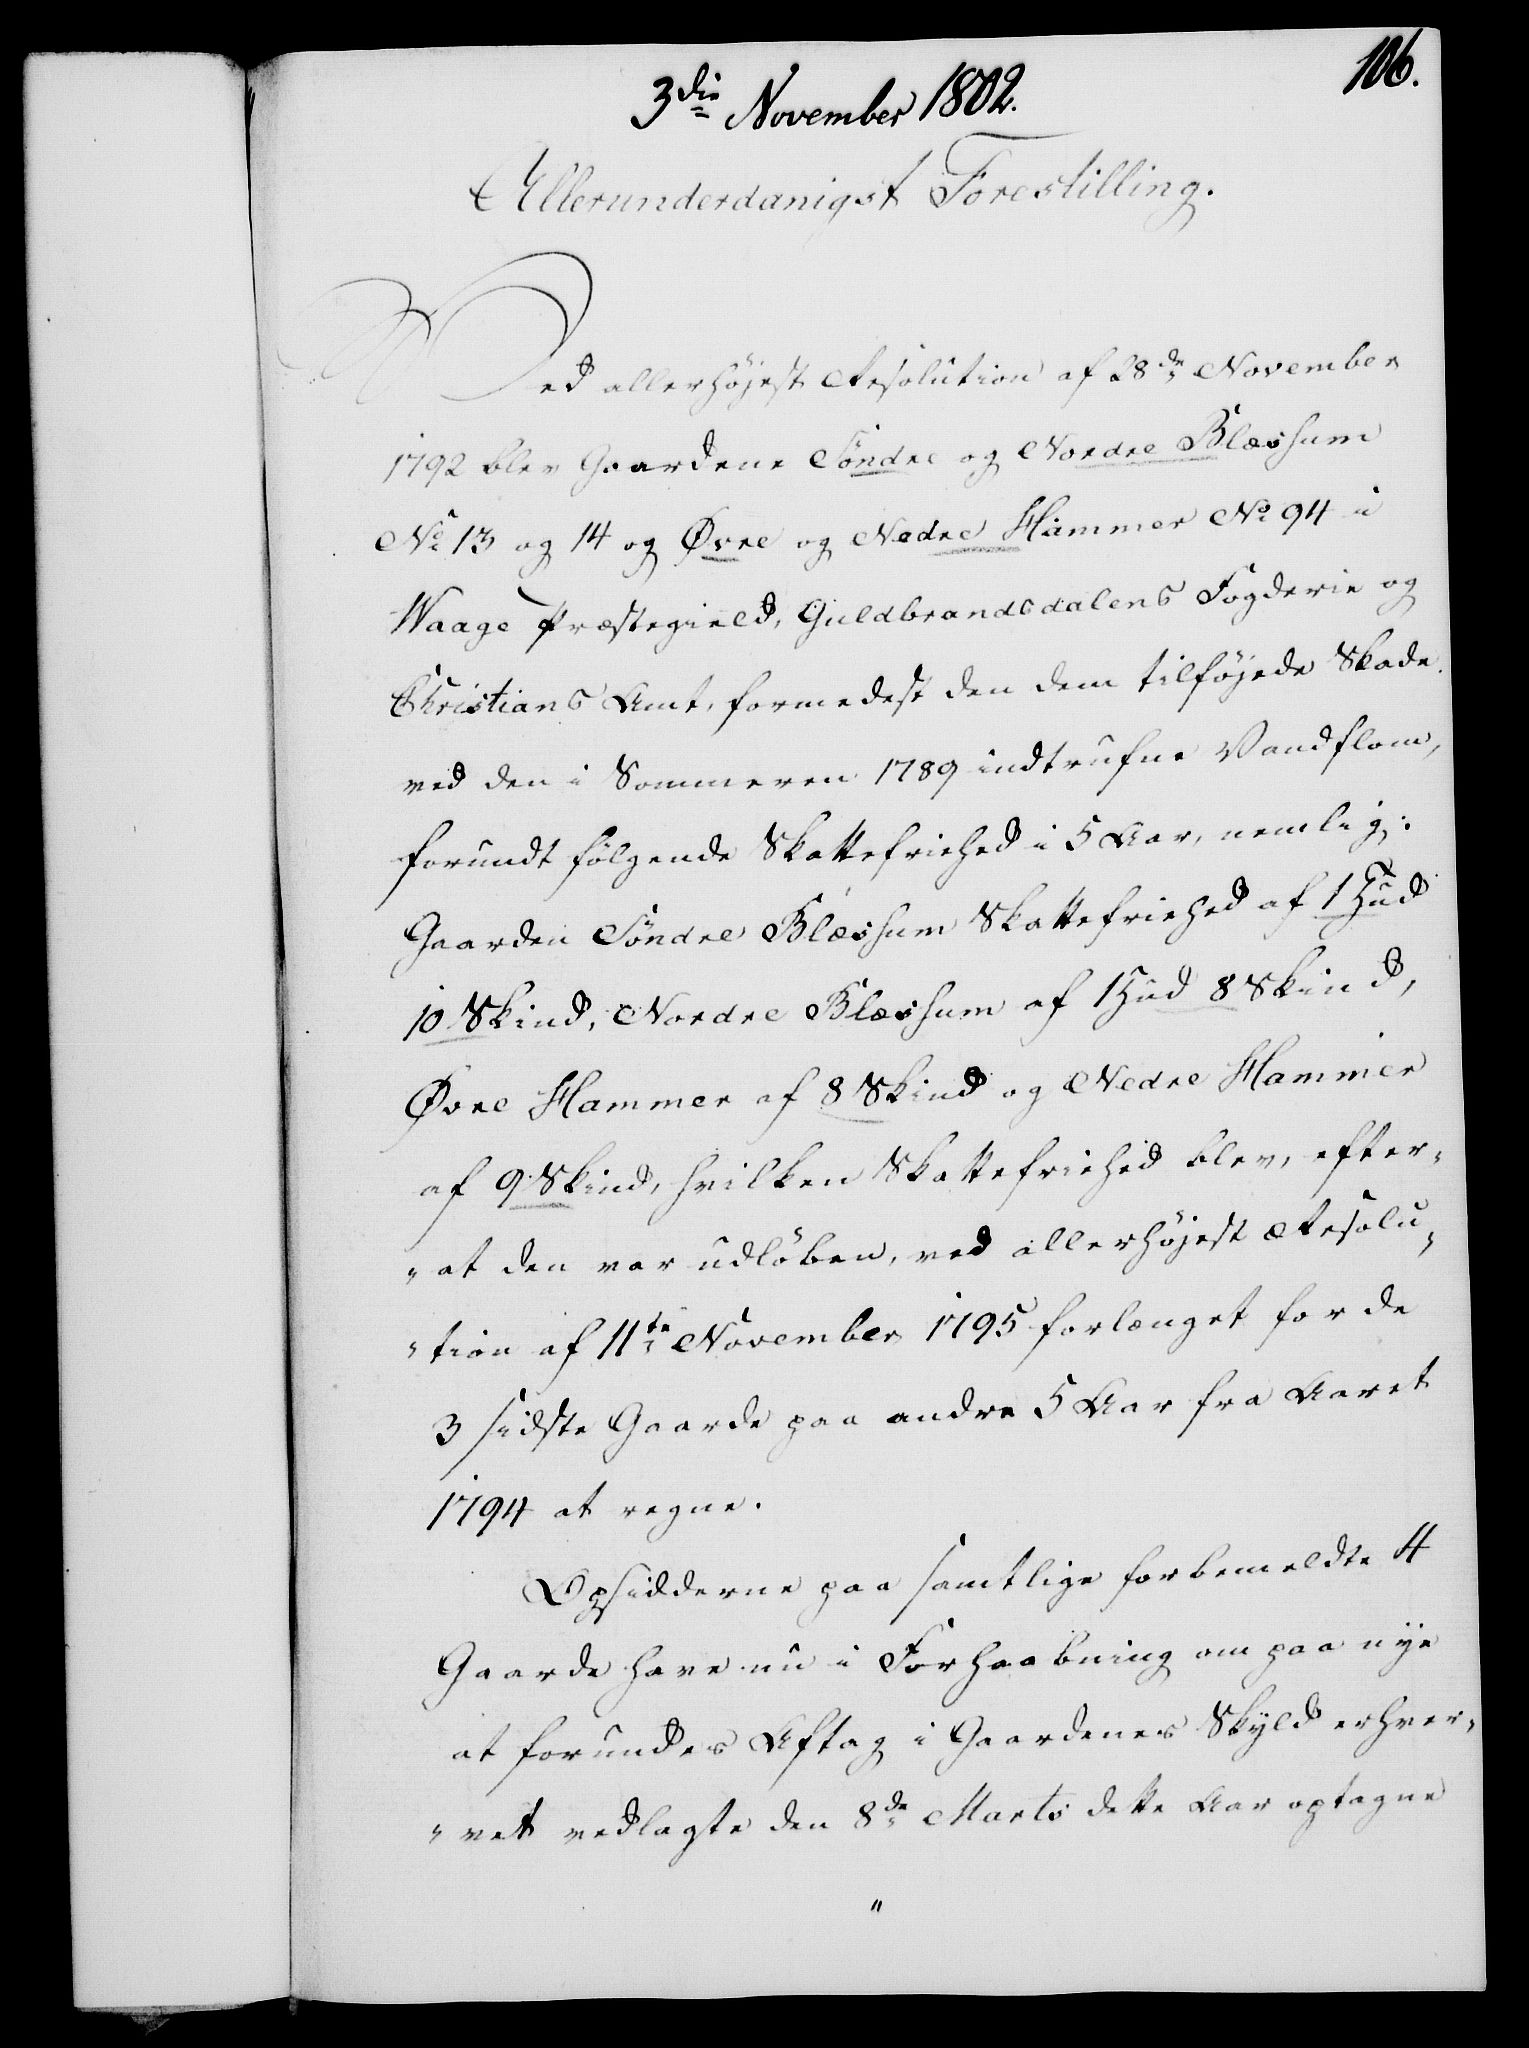 106.
3die November 1802.
Allerunderdanigst Forestilling.
Ved allerhöjest Resolution af 28de November
1792 blev Gaardene Söndre og Nordre Blæshum
No 13 og 14 og Øvre og Nedre Hammer No 94 i
Waage Præstegield, Guldbrandsdalens Fogderie og
Christians Amt, formedelst den dem tilföjede Skade
ved den i Sommeren 1789 indtrufne Vandflom,
forundt fölgende Skattefriehed i 5 Aar, nemlig:
Gaarden Söndre Blæshum Skattefriehed af 1 Hud
10 Skind, Nordre Blæshum af 1 Hud 8 Skind,
Øvre Hammer af 8 Skind og Nedre Hammer
af 9 Skind, hvilken Skattefriehed blev, efter-
"at den var udlöben, ved allerhöjest Resolu-
"tion af 11te November 1795 forlænget for de
3 sidste Gaarde paa andre 5 Aar fra Aaret
1794 at regne.
Opsidderne paa samtlige forbemeldte 4
Gaarde have nu i Forhaabning om paa nye
at forundes Aftag i Gaardenes Skyld erhver-
"vet vedlagte den 8de Marts dette Aar optagne
"